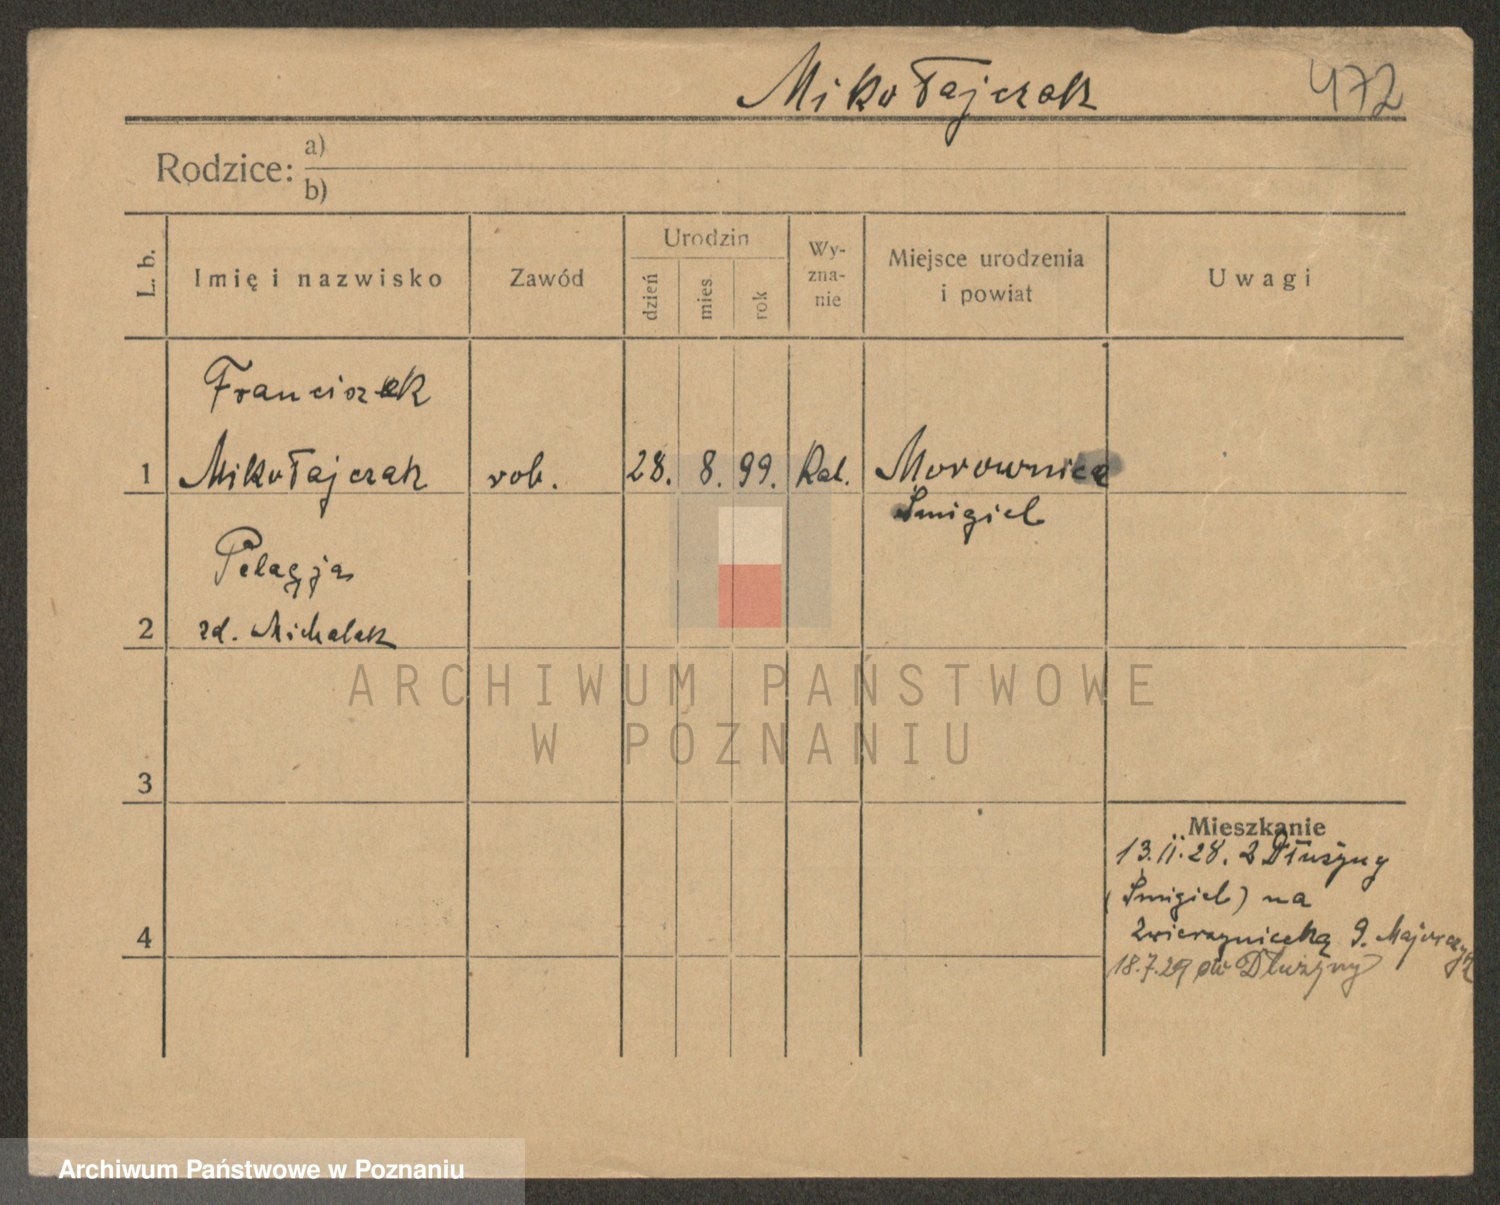 Mikołajczak 472
Rodzice: a)
b)
L. b.
Imię i nazwisko
Zawód
Urodzin
dzień
mies.
rok
Wy-
zna-
nie
Miejsce urodzenia
i powiat
Uwagi
Franciszek
1 Mikołajczak rob. 28. 8. 99. Kat. Morownica
Śmigiel
Pelagja
2 zd. Michalak
ARCHIWUM PAŃSTWOWE
W POZNANIU
3
Mieszkanie
13.II.28. z Dłużyny
(Śmigiel) na
4 Zwierzyniecką 9.
18.7.29 do Dłużyny
Archiwum Państwowe w Poznaniu